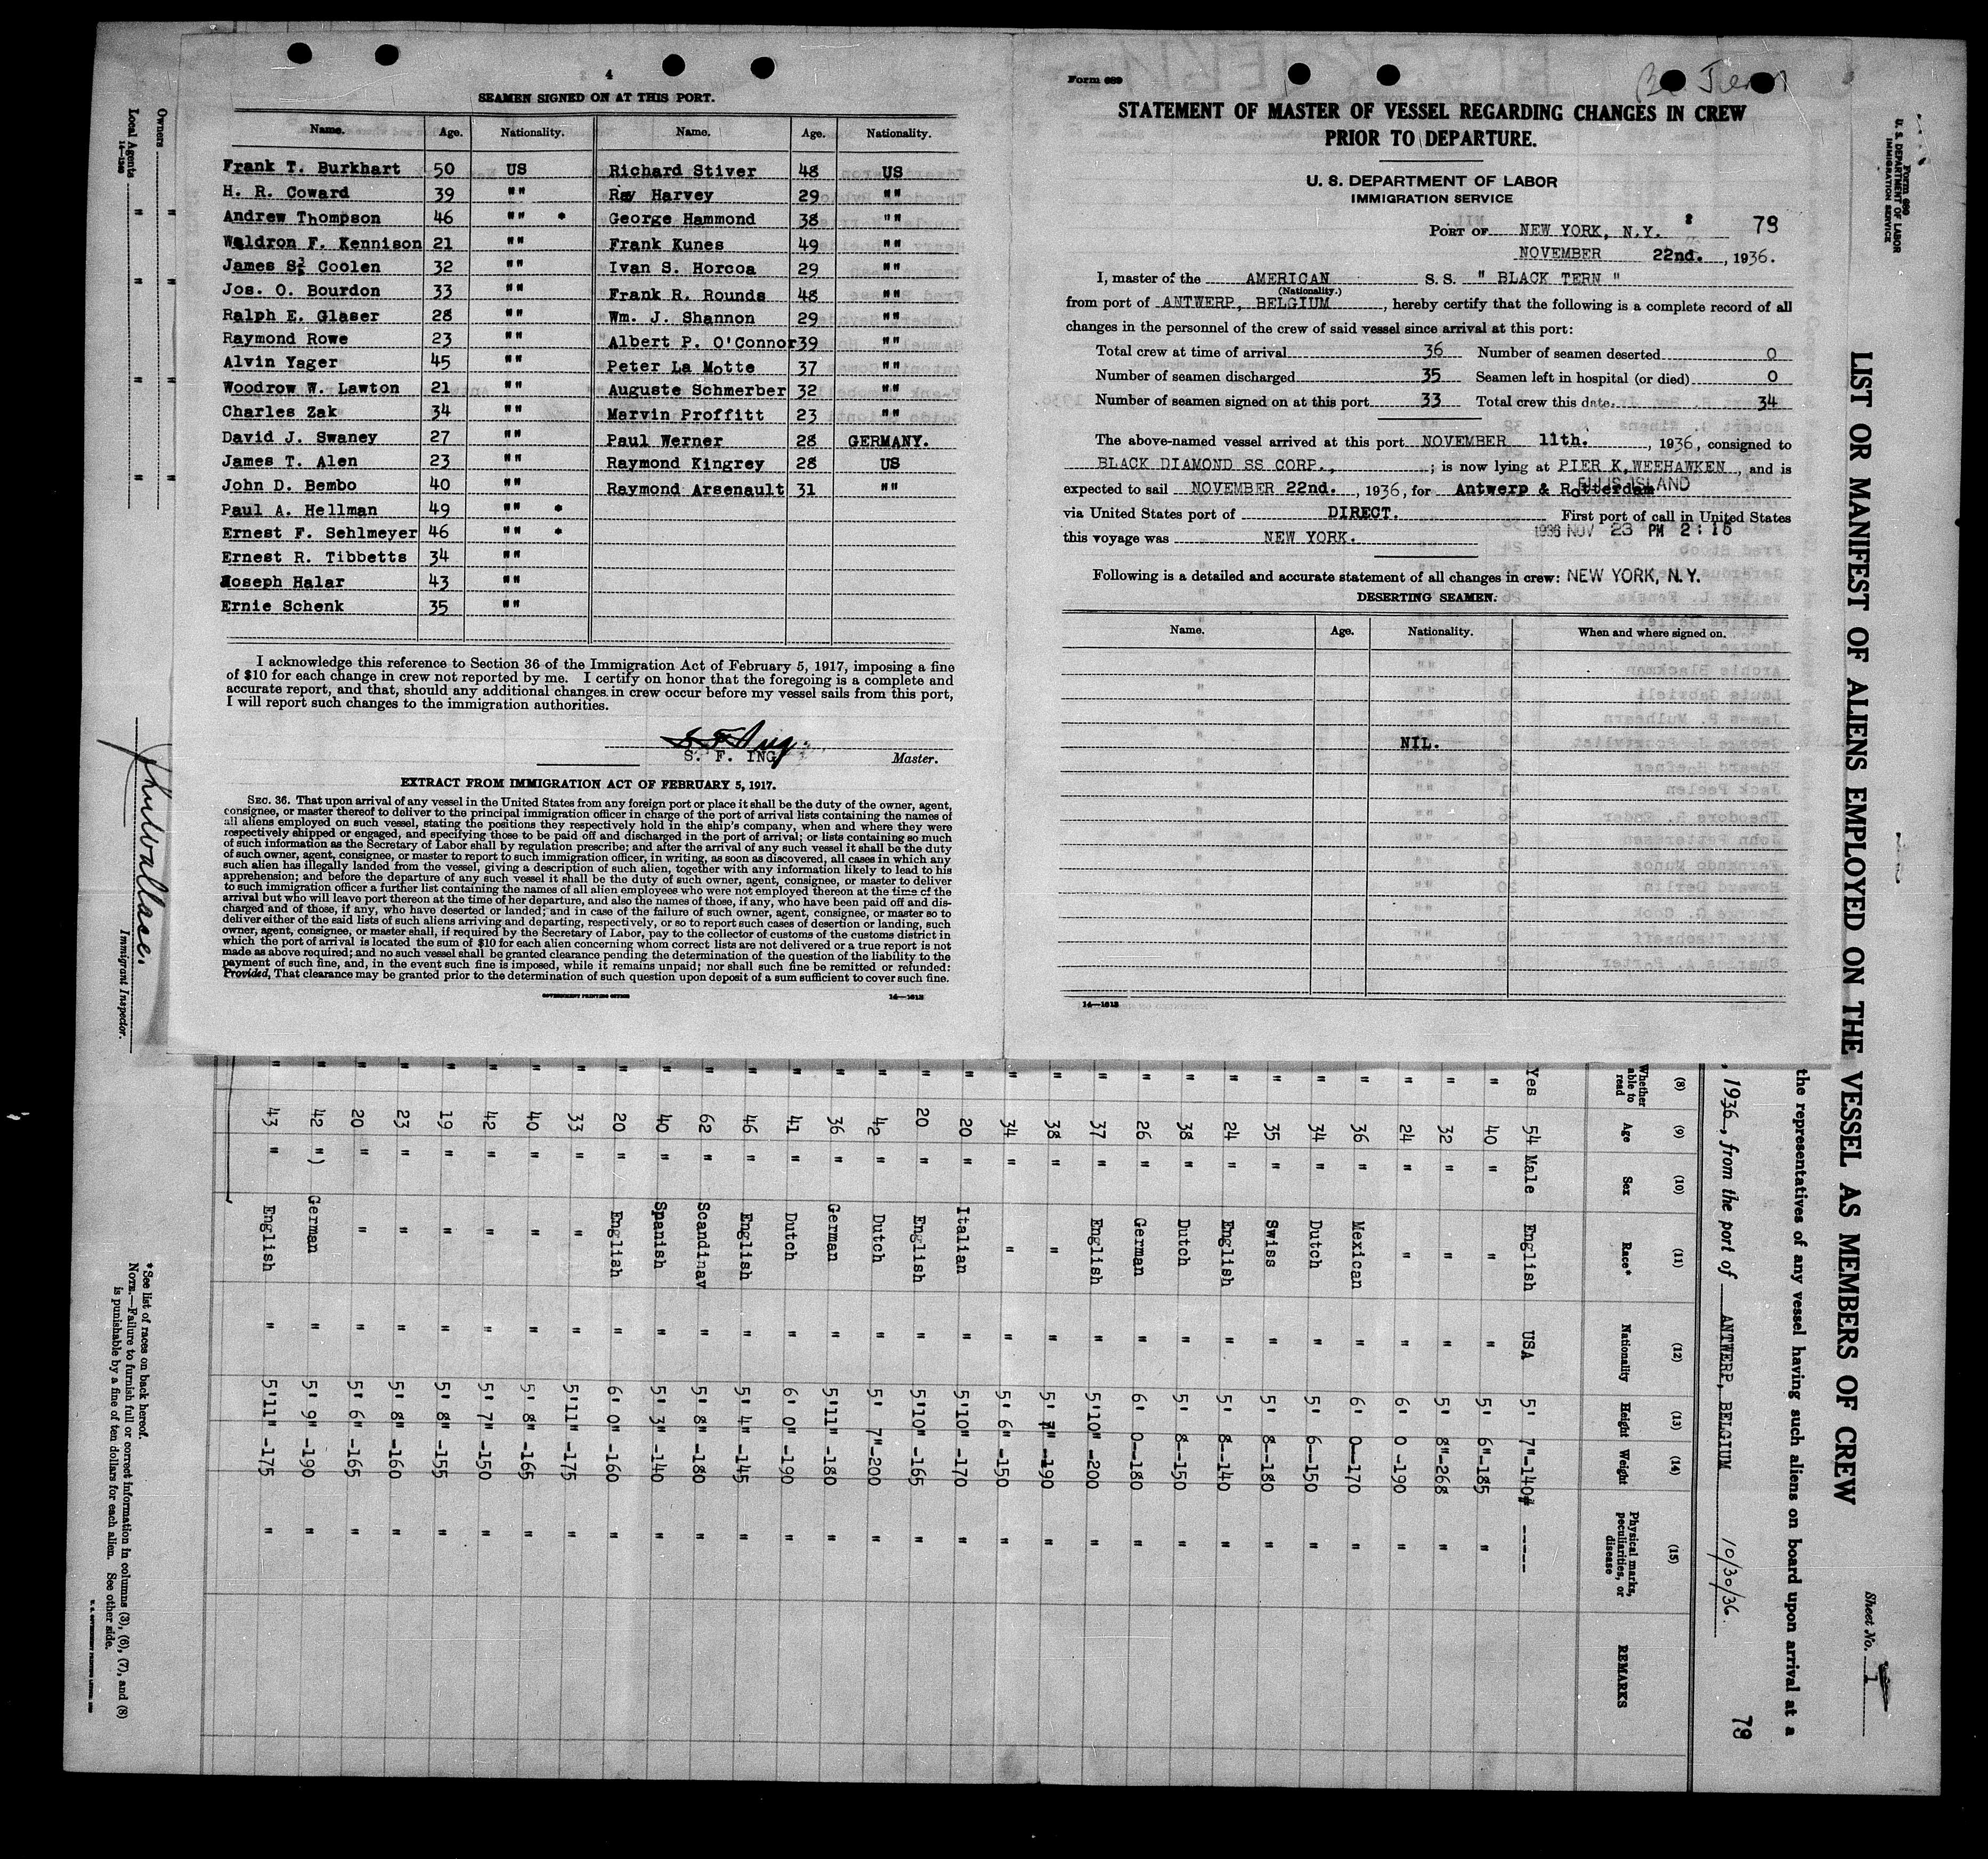 4
SEAMEN SIGNED ON AT THIS PORT.
Name. Age. Nationality. Name. Age. Nationality.
Frank T. Burkhart 50 US Richard Stiver 48 US
H. R. Coward 39 "" Ray Harvey 29 ""
Andrew Thompson 46 "" * George Hammond 38 ""
Waldron F. Kennison 21 "" Frank Kunes 49 ""
James S. Coolen 32 "" Ivan S. Horcoa 29 ""
Jos. O. Bourdon 33 "" Frank R. Rounds 48 ""
Ralph E. Glaser 28 "" Wm. J. Shannon 29 ""
Raymond Rowe 23 "" Albert P. O'Connor 39 ""
Alvin Yager 45 "" Peter La Motte 37 ""
Woodrow W. Lawton 21 "" Auguste Schmerber 32 ""
Charles Zak 34 "" Marvin Proffitt 23 ""
David J. Swaney 27 "" Paul Werner 28 GERMANY.
James T. Alen 23 "" Raymond Kingrey 28 US
John D. Bembo 40 "" Raymond Arsenault 31 ""
Paul A. Hellman 49 "" *
Ernest F. Sehlmeyer 46 "" *
Ernest R. Tibbetts 34 ""
Joseph Halar 43 ""
Ernie Schenk 35 ""
I acknowledge this reference to Section 36 of the Immigration Act of February 5, 1917, imposing a fine
of $10 for each change in crew not reported by me. I certify on honor that the foregoing is a complete and
accurate report, and that, should any additional changes in crew occur before my vessel sails from this port,
I will report such changes to the immigration authorities.
S F Ing
S. F. ING Master.
EXTRACT FROM IMMIGRATION ACT OF FEBRUARY 5, 1917.
SEC. 36. That upon arrival of any vessel in the United States from any foreign port or place it shall be the duty of the owner, agent,
consignee, or master thereof to deliver to the principal immigration officer in charge of the port of arrival lists containing the names of
all aliens employed on such vessel, stating the positions they respectively hold in the ship's company, when and where they were
respectively shipped or engaged, and specifying those to be paid off and discharged in the port of arrival; or lists containing so much
of such information as the Secretary of Labor shall by regulation prescribe; and after the arrival of any such vessel it shall be the duty
of such owner, agent, consignee, or master to report to such immigration officer, in writing, as soon as discovered, all cases in which any
such alien has illegally landed from the vessel, giving a description of such alien, together with any information likely to lead to his
apprehension; and before the departure of any such vessel it shall be the duty of such owner, agent, consignee, or master to deliver
to such immigration officer a further list containing the names of all alien employees who were not employed thereon at the time of the
arrival but who will leave port thereon at the time of her departure, and also the names of those, if any, who have been paid off and dis-
charged and of those, if any, who have deserted or landed; and in case of the failure of such owner, agent, consignee, or master so to
deliver either of the said lists of such aliens arriving and departing, respectively, or so to report such cases of desertion or landing, such
owner, agent, consignee, or master shall, if required by the Secretary of Labor, pay to the collector of customs of the customs district in
which the port of arrival is located the sum of $10 for each alien concerning whom correct lists are not delivered or a true report is not
made as above required; and no such vessel shall be granted clearance pending the determination of the question of the liability to the
payment of such fine, and, in the event such fine is imposed, while it remains unpaid; nor shall such fine be remitted or refunded:
Provided, That clearance may be granted prior to the determination of such question upon deposit of a sum sufficient to cover such fine.
GOVERNMENT PRINTING OFFICE 14—1613
Form 689
Tern
STATEMENT OF MASTER OF VESSEL REGARDING CHANGES IN CREW
PRIOR TO DEPARTURE.
U. S. DEPARTMENT OF LABOR
IMMIGRATION SERVICE
PORT OF NEW YORK, N.Y. 79
NOVEMBER 22nd., 1936.
I, master of the AMERICAN S. S. " BLACK TERN "
(Nationality.)
from port of ANTWERP, BELGIUM, hereby certify that the following is a complete record of all
changes in the personnel of the crew of said vessel since arrival at this port:
Total crew at time of arrival 36 Number of seamen deserted 0
Number of seamen discharged 35 Seamen left in hospital (or died) 0
Number of seamen signed on at this port 33 Total crew this date. 34
The above-named vessel arrived at this port NOVEMBER 11th., 1936, consigned to
BLACK DIAMOND SS CORP., ; is now lying at PIER K, WEEHAWKEN, and is
ELLIS ISLAND
expected to sail NOVEMBER 22nd., 1936, for Antwerp & Rotterdam
via United States port of DIRECT. First port of call in United States
1936 NOV 23 PM 2:15
this voyage was NEW YORK.
Following is a detailed and accurate statement of all changes in crew: NEW YORK, N. Y.
DESERTING SEAMEN.
Name. Age. Nationality. When and where signed on.
NIL.
14—1613
Owners
Local Agents
14—1240
Immigrant Inspector.
Form 680
U. S. DEPARTMENT OF LABOR
IMMIGRATION SERVICE
LIST OR MANIFEST OF ALIENS EMPLOYED ON THE VESSEL AS MEMBERS OF CREW
Sheet No. 1
the representatives of any vessel having such aliens on board upon arrival at a
, 1936, from the port of ANTWERP, BELGIUM 10/30/36. 79
(8) (9) (10) (11) (12) (13) (14) (15)
Whether able to read Age Sex Race* Nationality Height Weight Physical marks, peculiarities, or disease REMARKS
Yes 54 Male English USA 5' 7"-140# -----
" 40 " " " 5' 6"-185 "
" 32 " " " 5' 8"-268 "
" 24 " " " 6' 0 -190 "
" 36 " Mexican " 6' 0--170 "
" 34 " Dutch " 5' 6--150 "
" 35 " Swiss " 5' 8--180 "
" 24 " English " 5' 8--140 "
" 38 " Dutch " 5' 8--150 "
" 26 " German " 6' 0--180 "
" 37 " English " 5'10" -200 "
" 38 " " " 5' 7" -190 "
" 34 " " " 5' 6" -150 "
" 20 " Italian " 5'10" -170 "
" 20 " English " 5'10" -165 "
" 42 " Dutch " 5' 7"-200 "
" 36 " German " 5'11" -180 "
" 41 " Dutch " 6' 0" -190 "
" 46 " English " 5' 4" -145 "
" 62 " Scandinav " 5' 8" -180 "
" 40 " Spanish " 5' 3" -140 "
" 20 " English " 6' 0" -160 "
" 33 " " " 5'11" -175 "
" 40 " " " 5' 8" -165 "
" 42 " " " 5' 7" -150 "
" 19 " " " 5' 8" -155 "
" 23 " " " 5' 8" -160 "
" 20 " " " 5' 6" -165 "
" 42 ") German " 5' 9" -190 "
" 43 " English " 5'11" -175 "
*See list of races on back hereof.
NOTE.—Failure to furnish full or correct information in columns (3), (6), (7), and (8)
is punishable by a fine of ten dollars for each alien. See other side.